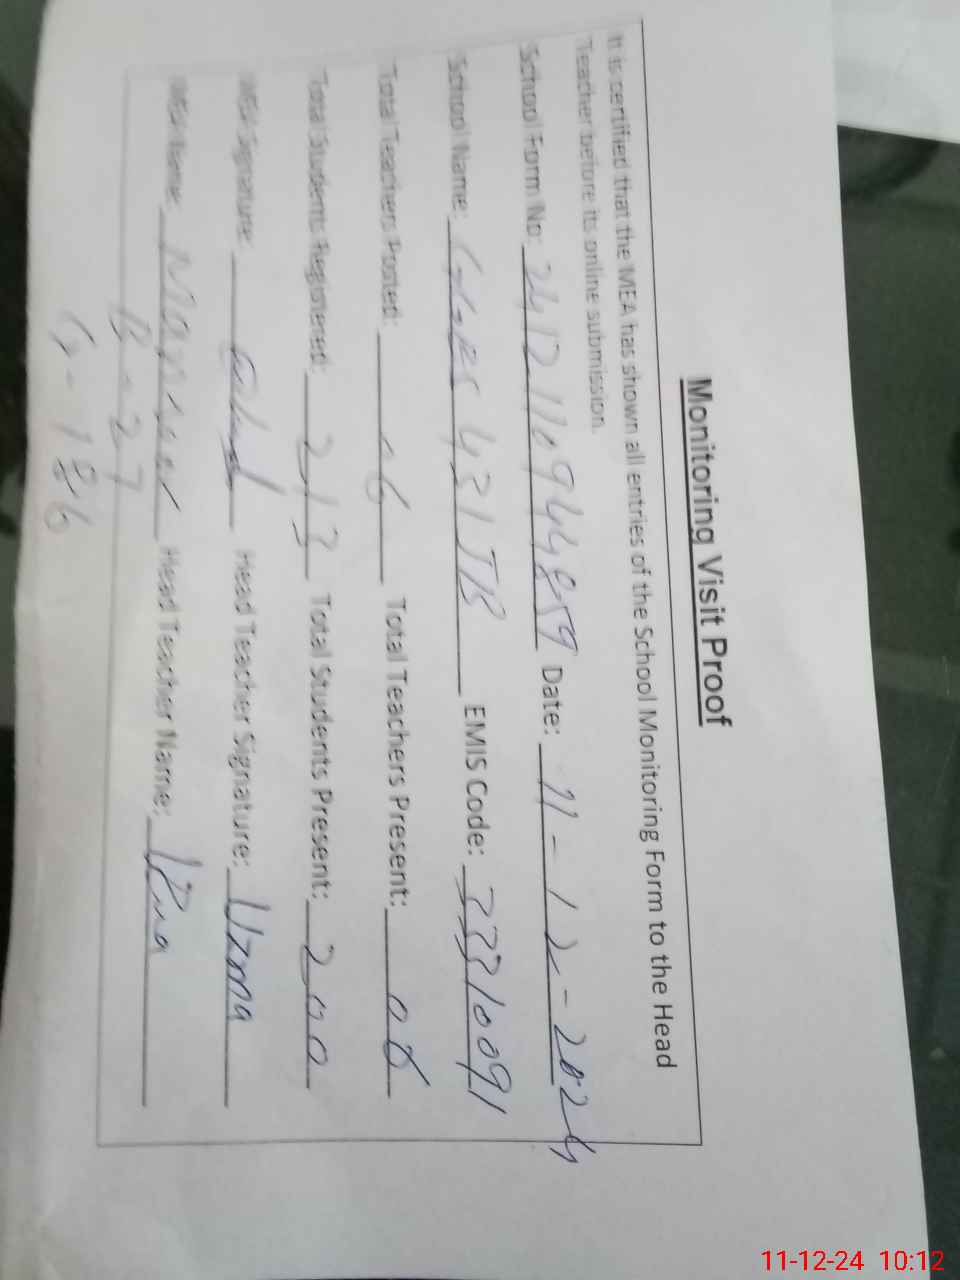 Monitoring Visit Proof
It is certified that the MEA has shown all entries of the School Monitoring Form to the Head
Teacher before its online submission.
School Form No: 241211094448859 Date: 11-12-2024
School Name: GGPS 431 JB EMIS Code: 33310091
Total Teachers Posted: 06 Total Teachers Present: 06
Total Students Registered: 213 Total Students Present: 200
MEA Signature: Head Teacher Signature: Uzma
MEA Name: Head Teacher Name: Uzma
B-27
G-186
11-12-24 10:12